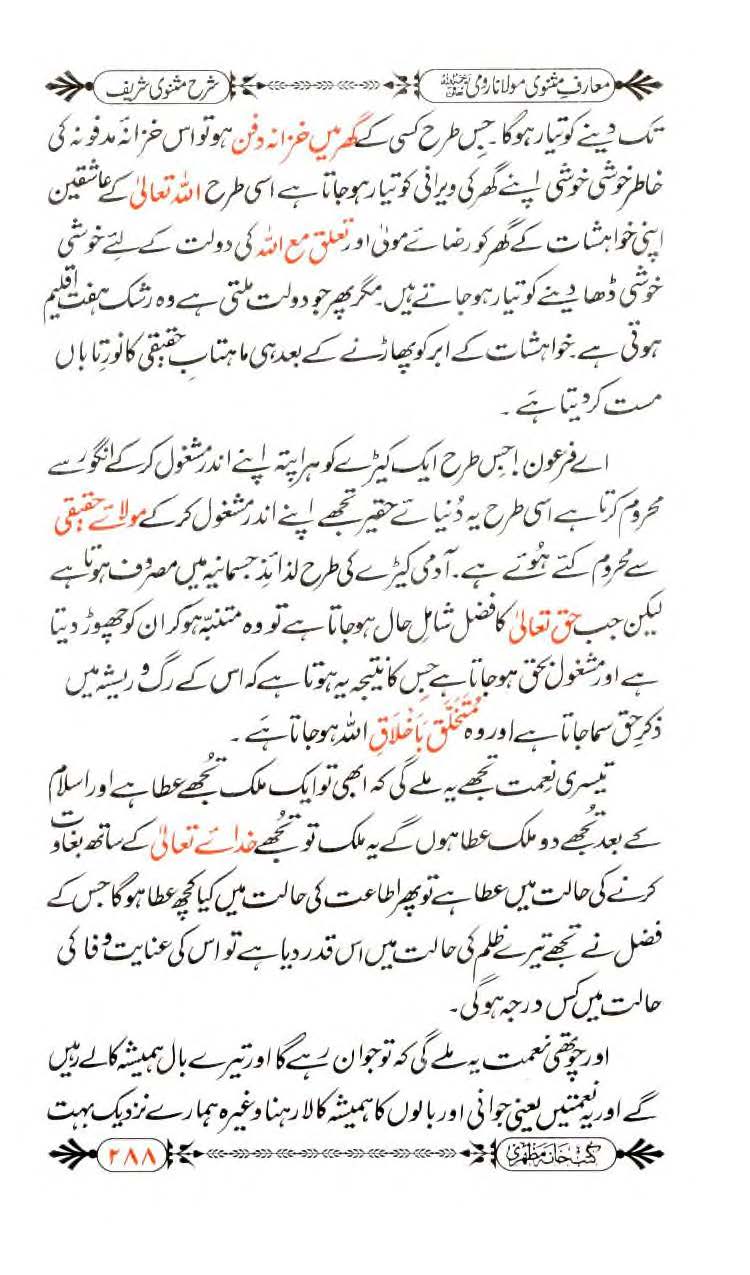 معارفِ مثنوی مولانا رومی رحمۃ اللہ علیہ
شرح مثنوی شریف
تک دینے کو تیار ہوگا۔ جس طرح کسی کے گھر میں خزانہ دفن ہو تو اس خزانۂ مدفونہ کی
خاطر خوشی خوشی اپنے گھر کی ویرانی کو تیار ہوجاتا ہے اسی طرح اللہ تعالیٰ کے عاشقین
اپنی خواہشات کے گھر کو رضائے مولیٰ اور تعلق مع اللہ کی دولت کے لئے خوشی
خوشی ڈھا دینے کو تیار ہوجاتے ہیں۔ مگر پھر جو دولت ملتی ہے وہ رشک ہفت اقلیم
ہوتی ہے۔ خواہشات کے ابر کو پھاڑنے کے بعد ہی ماہتابِ حقیقی کا نورِ تاباں
مست کر دیتا ہے۔
اے فرعون! جس طرح ایک کیڑے کو ہرا پتہ اپنے اندر مشغول کر کے انگور سے
محروم کرتا ہے اسی طرح یہ دُنیائے حقیر تجھے اپنے اندر مشغول کر کے مولائے حقیقی
سے محروم کئے ہُوئے ہے۔ آدمی کیڑے کی طرح لذائذِ جسمانیہ میں مصروف ہوتا ہے
لیکن جب حق تعالیٰ کا فضل شاملِ حال ہوجاتا ہے تو وہ متنبّہ ہوکر ان کو چھوڑ دیتا
ہے اور مشغول بحق ہوجاتا ہے جس کا نتیجہ یہ ہوتا ہے کہ اس کے رگ و ریشہ میں
ذکرِ حق سما جاتا ہے اور وہ مُتَخَلِّق بَاَخلَاقِ اللہ ہوجاتا ہے۔
تیسری نعمت تجھے یہ ملے گی کہ ابھی تو ایک ملک تُجھے عطا ہے اور اسلام
کے بعد تُجھے دو ملک عطا ہوں گے یہ ملک تو تُجھے خدائے تعالیٰ کے ساتھ بغاوت
کرنے کی حالت میں عطا ہے تو پھر اطاعت کی حالت میں کیا کچھ عطا ہوگا جس کے
فضل نے تجھے تیرے ظلم کی حالت میں اس قدر دیا ہے تو اس کی عنایت وفا کی
حالت میں کس درجہ ہوگی۔
اور چوتھی نعمت یہ ملے گی کہ تو جوان رہے گا اور تیرے بال ہمیشہ کالے رہیں
گے اور یہ نعمتیں یعنی جوانی اور بالوں کا ہمیشہ کالا رہنا وغیرہ ہمارے نزدیک بہت
کتب خانہ مظہری
۲۸۸